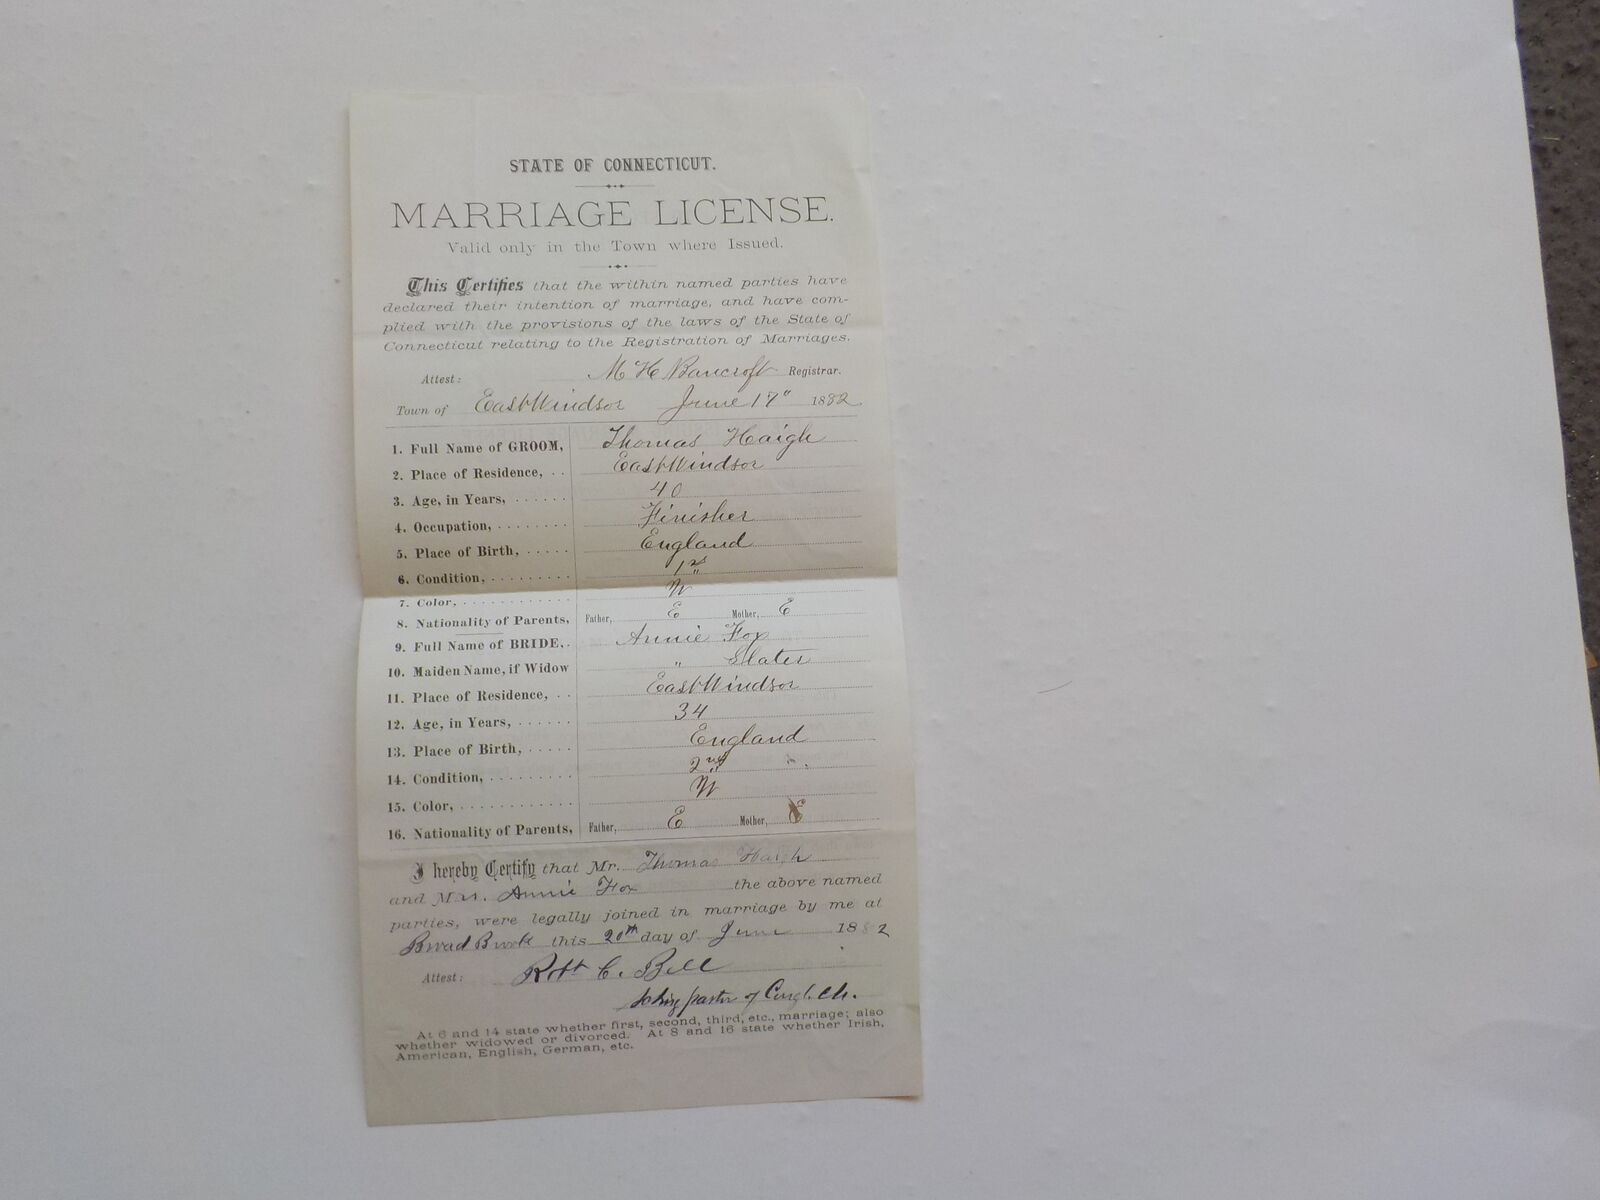 STATE OF CONNECTICUT.
MARRIAGE LICENSE.
Valid only in the Town where Issued.
This Certifies that the within named parties have
declared their intention of marriage, and have com-
plied with the provisions of the laws of the State of
Connecticut relating to the Registration of Marriages.
Attest: M H Bancroft Registrar.
Town of East Windsor June 17" 1882
1. Full Name of GROOM, Thomas Haigh
2. Place of Residence, . . East Windsor
3. Age, in Years, . . . . . . 40
4. Occupation, . . . . . . . . Finisher
5. Place of Birth, . . . . . England
6. Condition, . . . . . . . . . 1st
7. Color, . . . . . . . . . . . . W
8. Nationality of Parents, Father, E Mother, E
9. Full Name of BRIDE, . . Annie Fox
10. Maiden Name, if Widow " Slater
11. Place of Residence, . . East Windsor
12. Age, in Years, . . . . . . 34
13. Place of Birth, . . . . . England
14. Condition, . . . . . . . . . 2nd
15. Color, . . . . . . . . . . . . W
16. Nationality of Parents, Father, E Mother, E
I hereby Certify that Mr. Thomas Haigh
and Mrs. Annie Fox the above named
parties, were legally joined in marriage by me at
Broad Brook this 20th day of June 1882
Attest: Robt C. Bell
acting pastor of Congl. Ch.
At 6 and 14 state whether first, second, third, etc., marriage; also
whether widowed or divorced. At 8 and 16 state whether Irish,
American, English, German, etc.